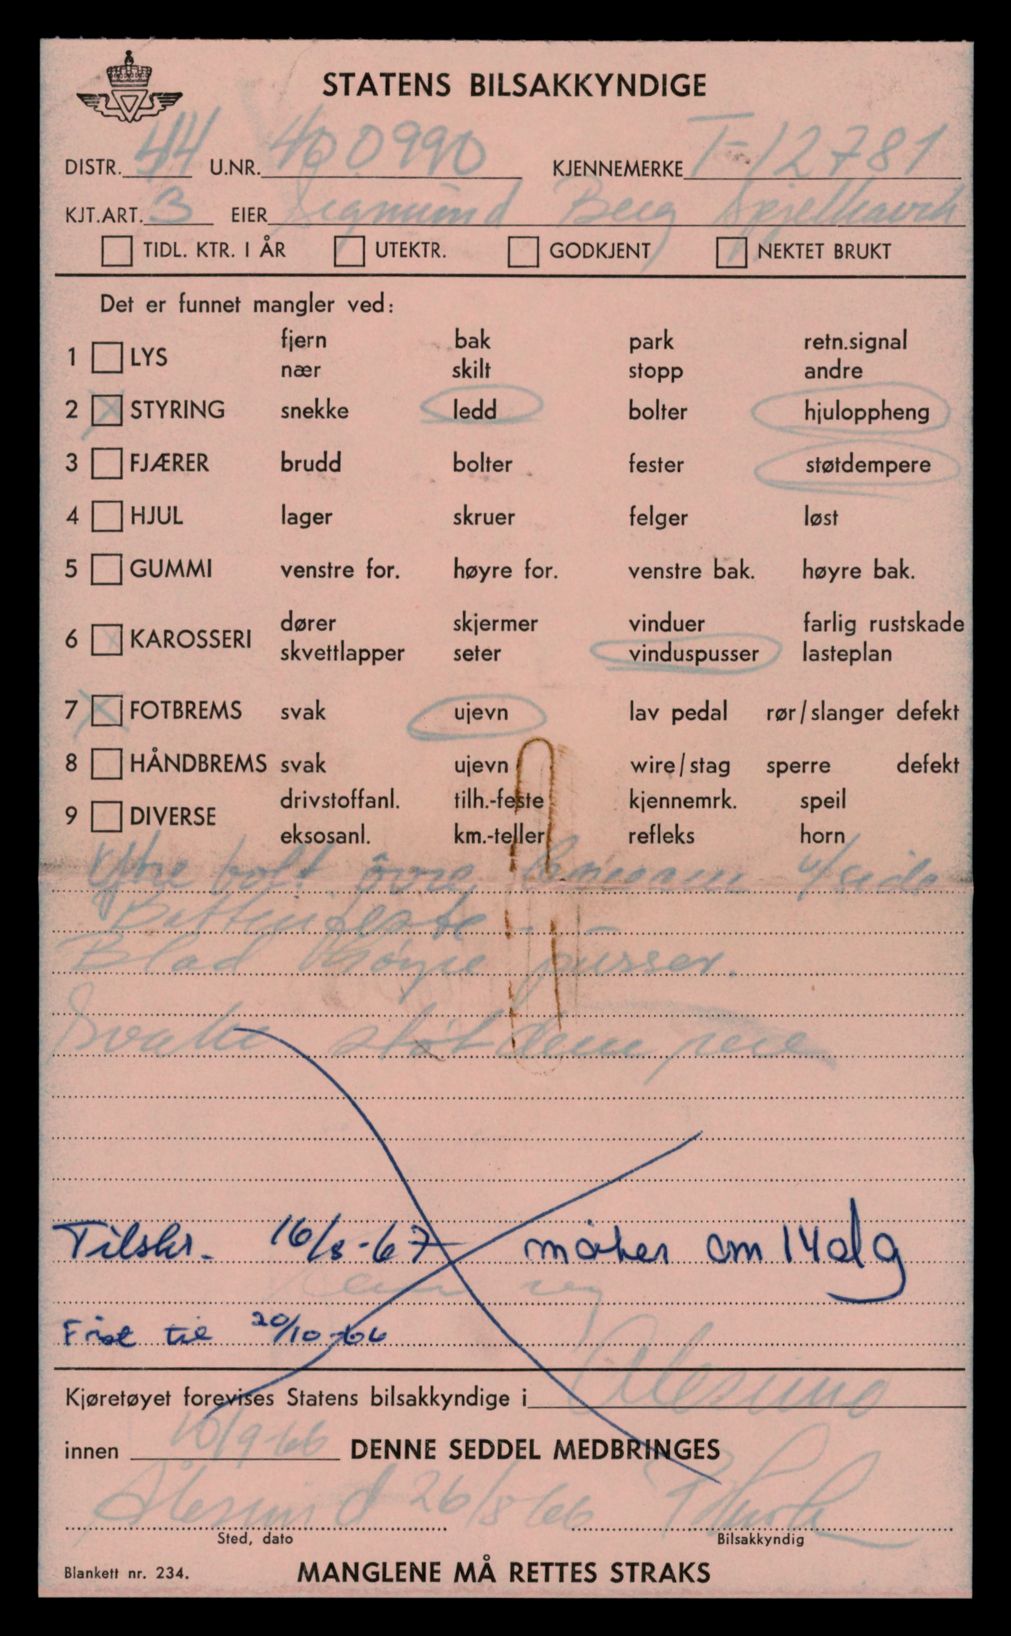 STATENS BILSAKKYNDIGE
DISTR. 44 U.NR. 400990 KJENNEMERKE T-12781
KJT.ART. 3 EIER Sigmund Berg Spjelkavik
TIDL. KTR. I ÅR UTEKTR. GODKJENT NEKTET BRUKT
Det er funnet mangler ved:
fjern bak park retn.signal
1 LYS
nær skilt stopp andre
2 STYRING snekke ledd bolter hjuloppheng
3 FJÆRER brudd bolter fester støtdempere
4 HJUL lager skruer felger løst
5 GUMMI venstre for. høyre for. venstre bak. høyre bak.
dører skjermer vinduer farlig rustskade
6 KAROSSERI
skvettlapper seter vinduspusser lasteplan
7 FOTBREMS svak ujevn lav pedal rør/slanger defekt
8 HÅNDBREMS svak ujevn wire/stag sperre defekt
drivstoffanl. tilh.-feste kjennemrk. speil
9 DIVERSE
eksosanl. km.-teller refleks horn
Ytre bolt øvre side
Blad høyre pusser.
Svake støtdempere
Tilskr. 16/8-67 møter om 14 dg
Frist til 20/10-66
Kjøretøyet forevises Statens bilsakkyndige i Ålesund
innen 10/9-66 DENNE SEDDEL MEDBRINGES
Ålesund 26/8 66
Sted, dato Bilsakkyndig
Blankett nr. 234. MANGLENE MÅ RETTES STRAKS